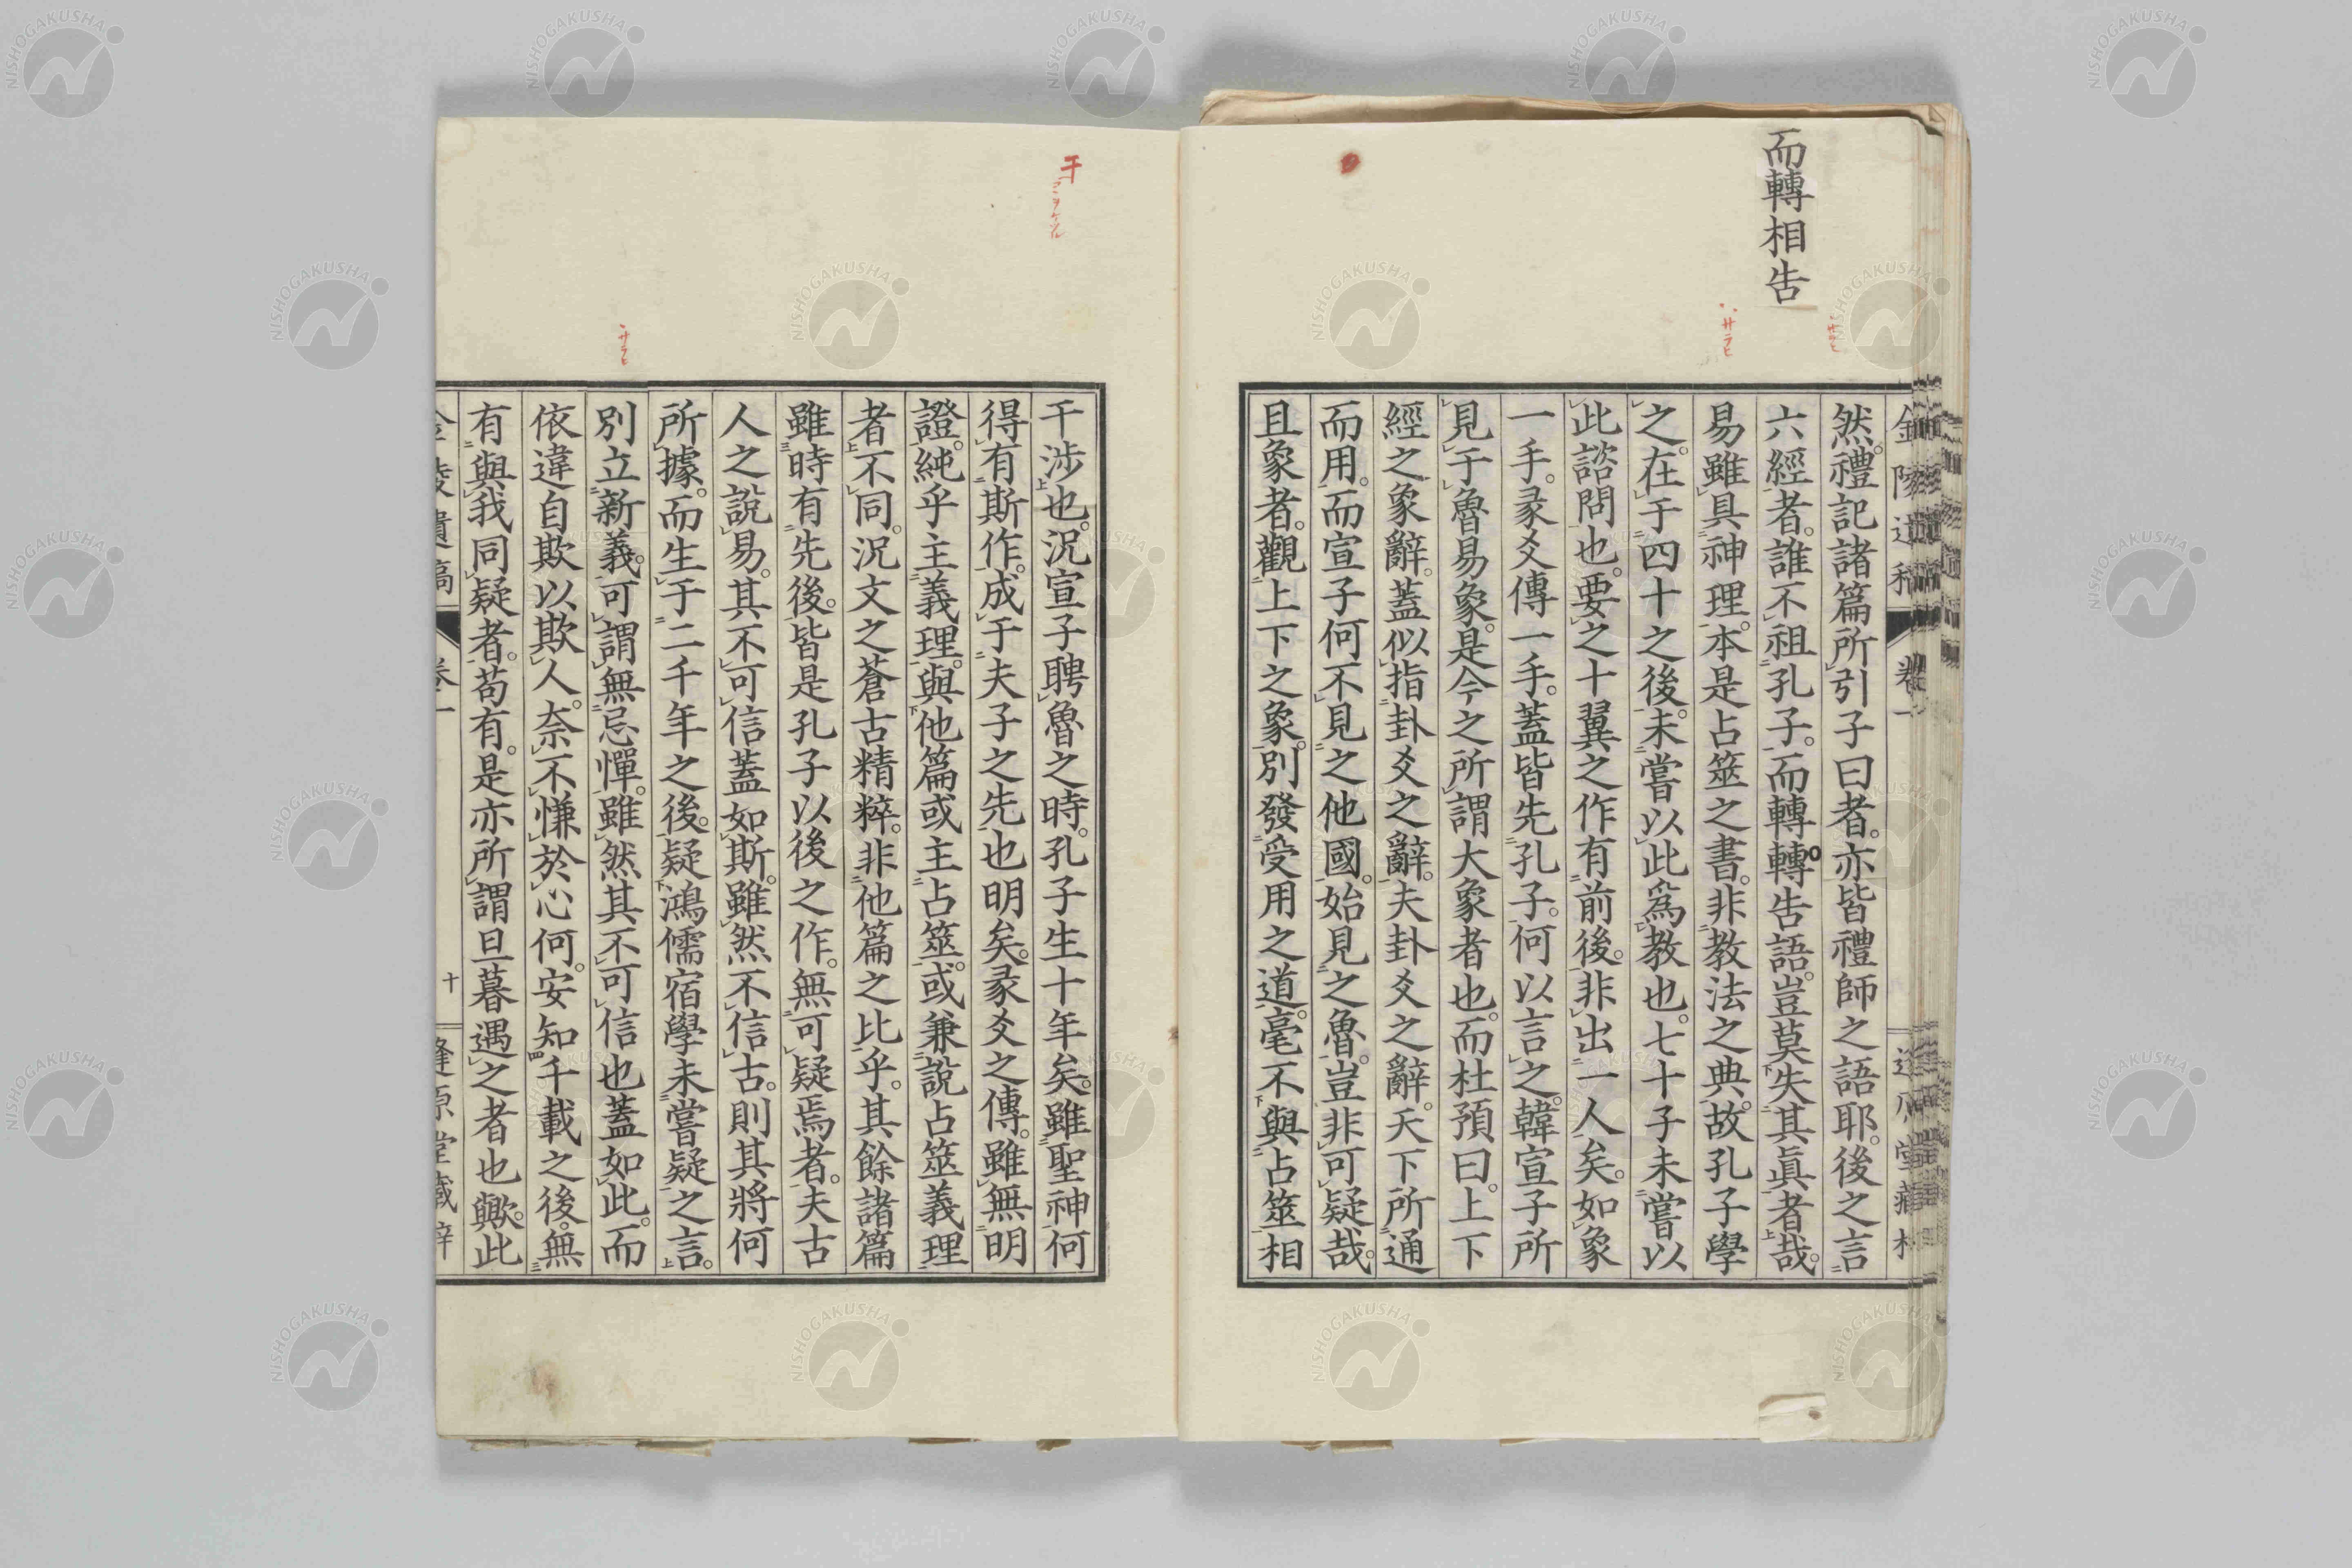 而轉相告
金陵遺稿 卷一
然。禮記諸篇所引子曰者。亦皆禮師之語耶。後之言
六經者。誰不祖孔子。而轉轉告語。豈莫失其眞者哉。
易雖具神理。本是占筮之書。非教法之典。故孔子學
之。在于四十之後。未嘗以此爲教也。七十子未嘗以
此諮問也。要之十翼之作有前後。非出一人矣。如象
一手。彖爻傳一手。蓋皆先孔子。何以言之。韓宣子所
見于魯易象。是今之所謂大象者也。而杜預曰。上下
經之象辭。蓋似指卦爻之辭。夫卦爻之辭。天下所通
而用。而宣子何不見之他國。始見之魯。豈非可疑哉。
且象者。觀上下之象。別發受用之道。毫不與占筮相
干涉也。況宣子聘魯之時。孔子生十年矣。雖聖神何
得有斯作。成于夫子之先也明矣。彖爻之傳。雖無明
證。純乎主義理。與他篇或主占筮。或兼說占筮義理
者不同。況文之蒼古精粹。非他篇之比乎。其餘諸篇
雖時有先後。皆是孔子以後之作。無可疑焉者。夫古
人之說易。其不可信蓋如斯。雖然不信古。則其將何
所據。而生于二千年之後。疑鴻儒宿學未嘗疑之言。
別立新義。可謂無忌憚。雖然其不可信也蓋如此。而
依違自欺以欺人。奈不慊於心何。安知千載之後。無
有與我同疑者。苟有。是亦所謂旦暮遇之者也歟。此
金陵遺稿 卷一 十 逢原堂藏梓
NISHOGAKUSHA